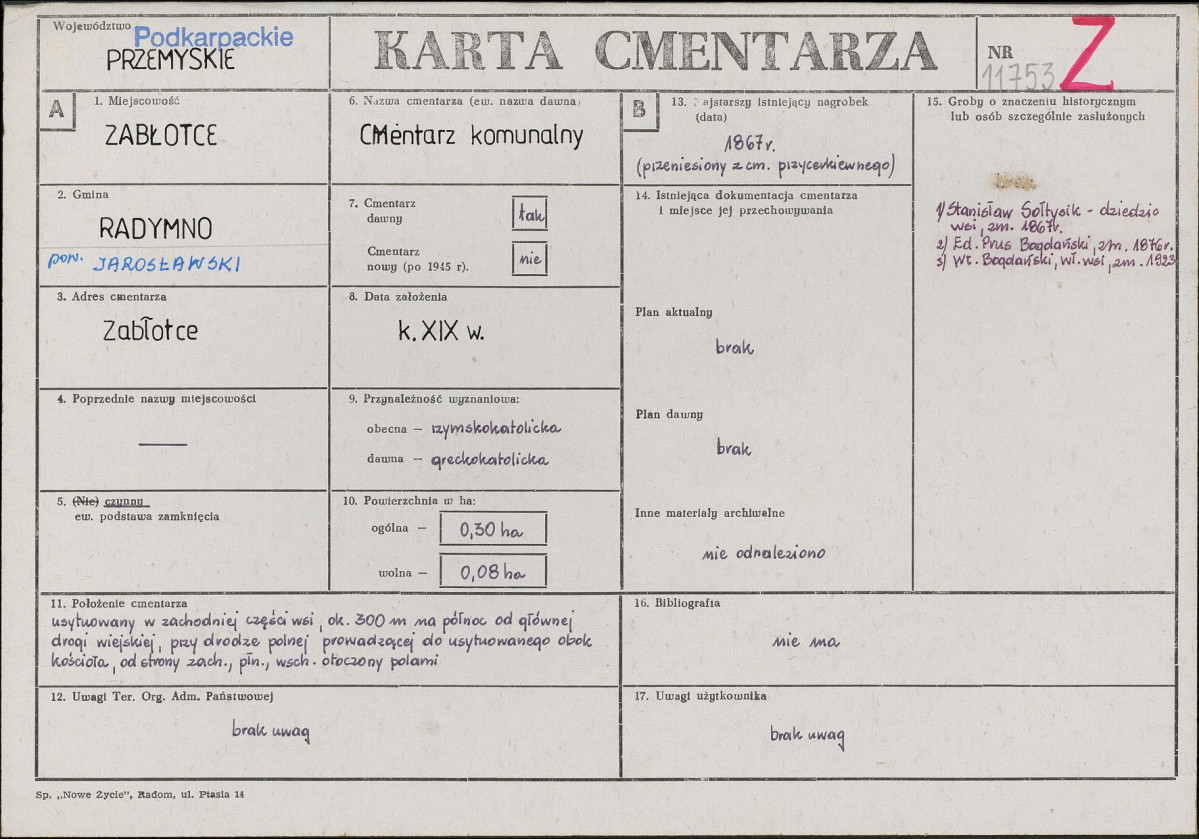 Województwo
Podkarpackie
PRZEMYSKIE
KARTA CMENTARZA
NR
11753
Z
A
1. Miejscowość
ZABŁOTCE
2. Gmina
RADYMNO
pow. JAROSŁAWSKI
3. Adres cmentarza
Zabłotce
4. Poprzednie nazwy miejscowości
—
5. (Nie) czynny
ew. podstawa zamknięcia
6. Nazwa cmentarza (ew. nazwa dawna)
CMentarz komunalny
7. Cmentarz
dawny
tak
Cmentarz
nowy (po 1945 r).
nie
8. Data założenia
k. XIX w.
9. Przynależność wyznaniowa:
obecna — rzymskokatolicka
dawna — greckokatolicka
10. Powierzchnia w ha:
ogólna — 0,30 ha
wolna — 0,08 ha
B
13. Najstarszy istniejący nagrobek
(data)
1867r.
(przeniesiony z cm. przycerkiewnego)
14. Istniejąca dokumentacja cmentarza
i miejsce jej przechowywania
Plan aktualny
brak
Plan dawny
brak
Inne materiały archiwalne
nie odnaleziono
15. Groby o znaczeniu historycznym
lub osób szczególnie zasłużonych
brak
1/ Stanisław Sołtysik - dziedzic
wsi, zm. 1867r.
2/ Ed. Prus Bogdański, zm. 1876r.
3/ Wł. Bogdański, wł. wsi, zm. 1923
11. Położenie cmentarza
usytuowany w zachodniej części wsi, ok. 300 m na północ od głównej
drogi wiejskiej, przy drodze polnej prowadzącej do usytuowanego obok
kościoła, od strony zach., płn., wsch. otoczony polami
12. Uwagi Ter. Org. Adm. Państwowej
brak uwag
16. Bibliografia
nie ma
17. Uwagi użytkownika
brak uwag
Sp. „Nowe Życie", Radom, ul. Ptasia 14